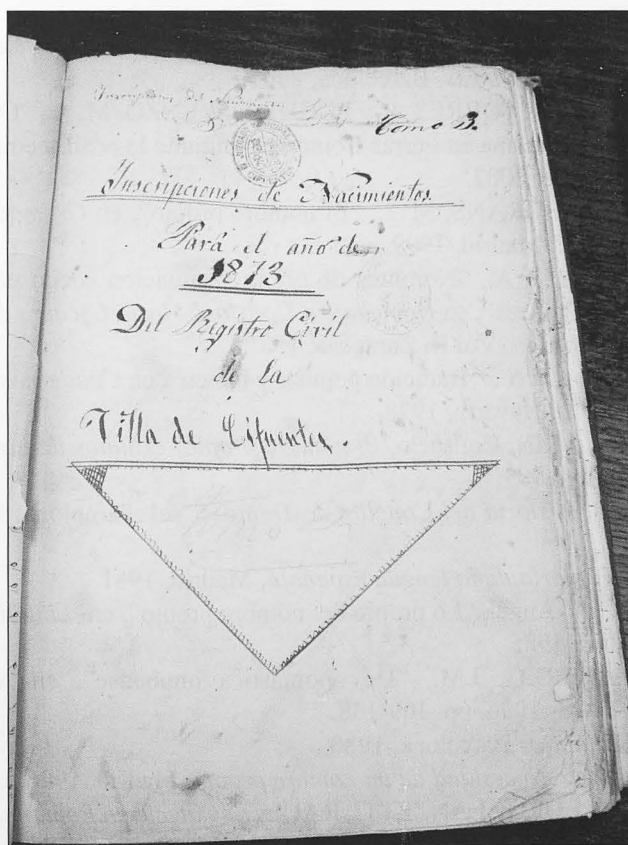 Inscripciones del Nacimientos
Tomo 3.
Inscripciones de Nacimientos.
Pará el año de
1873
Del Registro Civil
de la
Villa de Cifuentes.